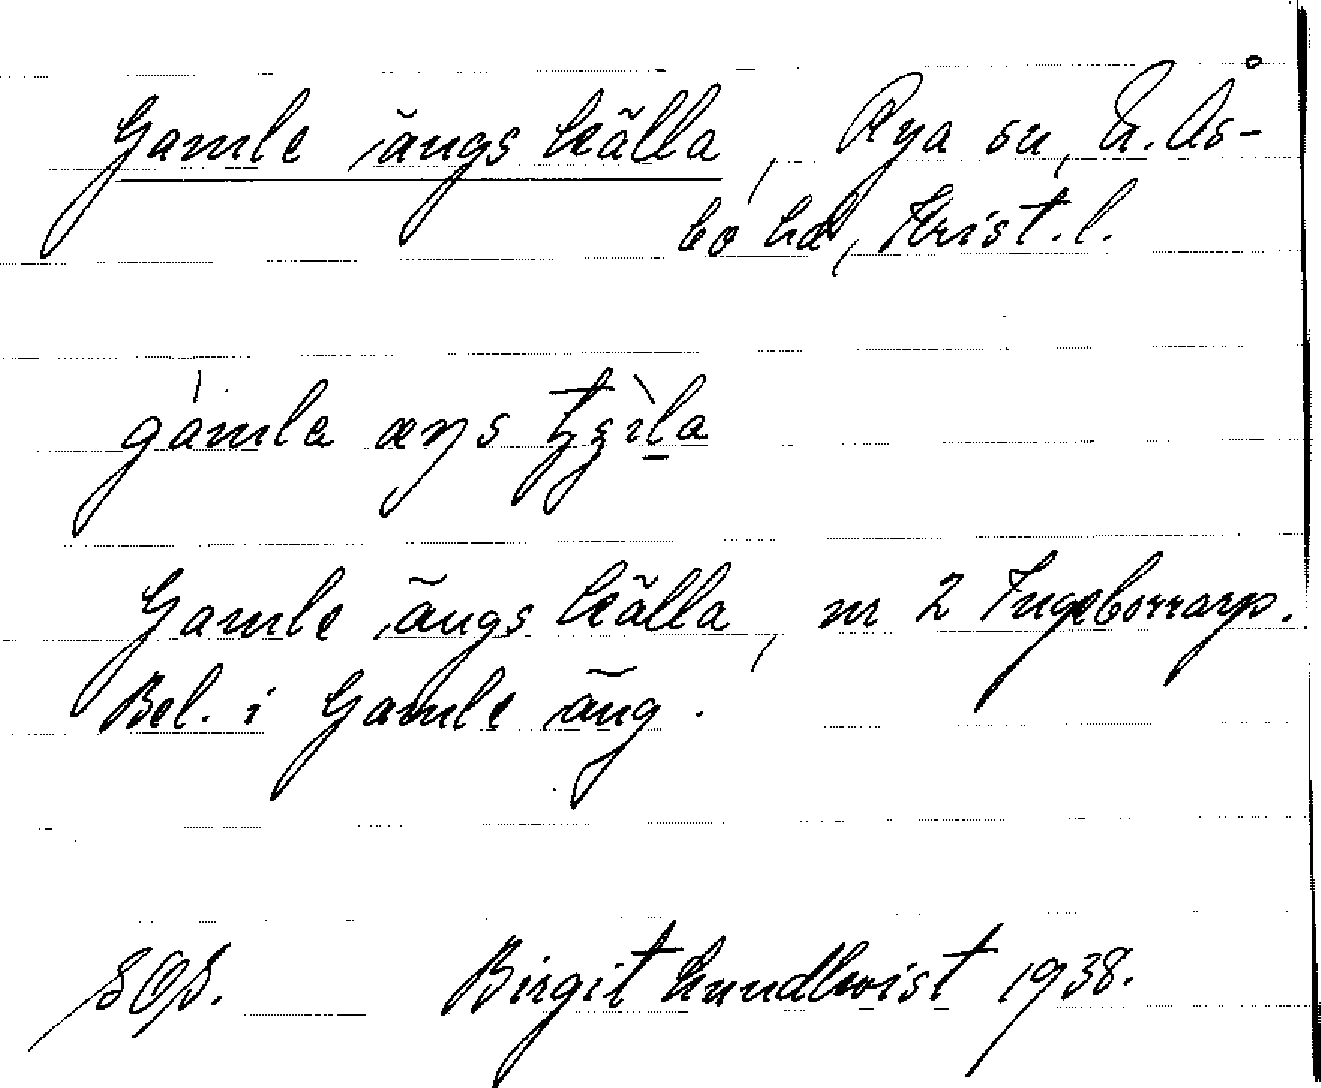 Gamle ängs källa, Rya sn, N. Ås-
bo hd, Krist. l.
gamla æŋs
Gamle ängs källa, nr 2 Ingeborrarp.
Bel. i Gamle äng.
SOS. Birgit Lundkvist 1938.